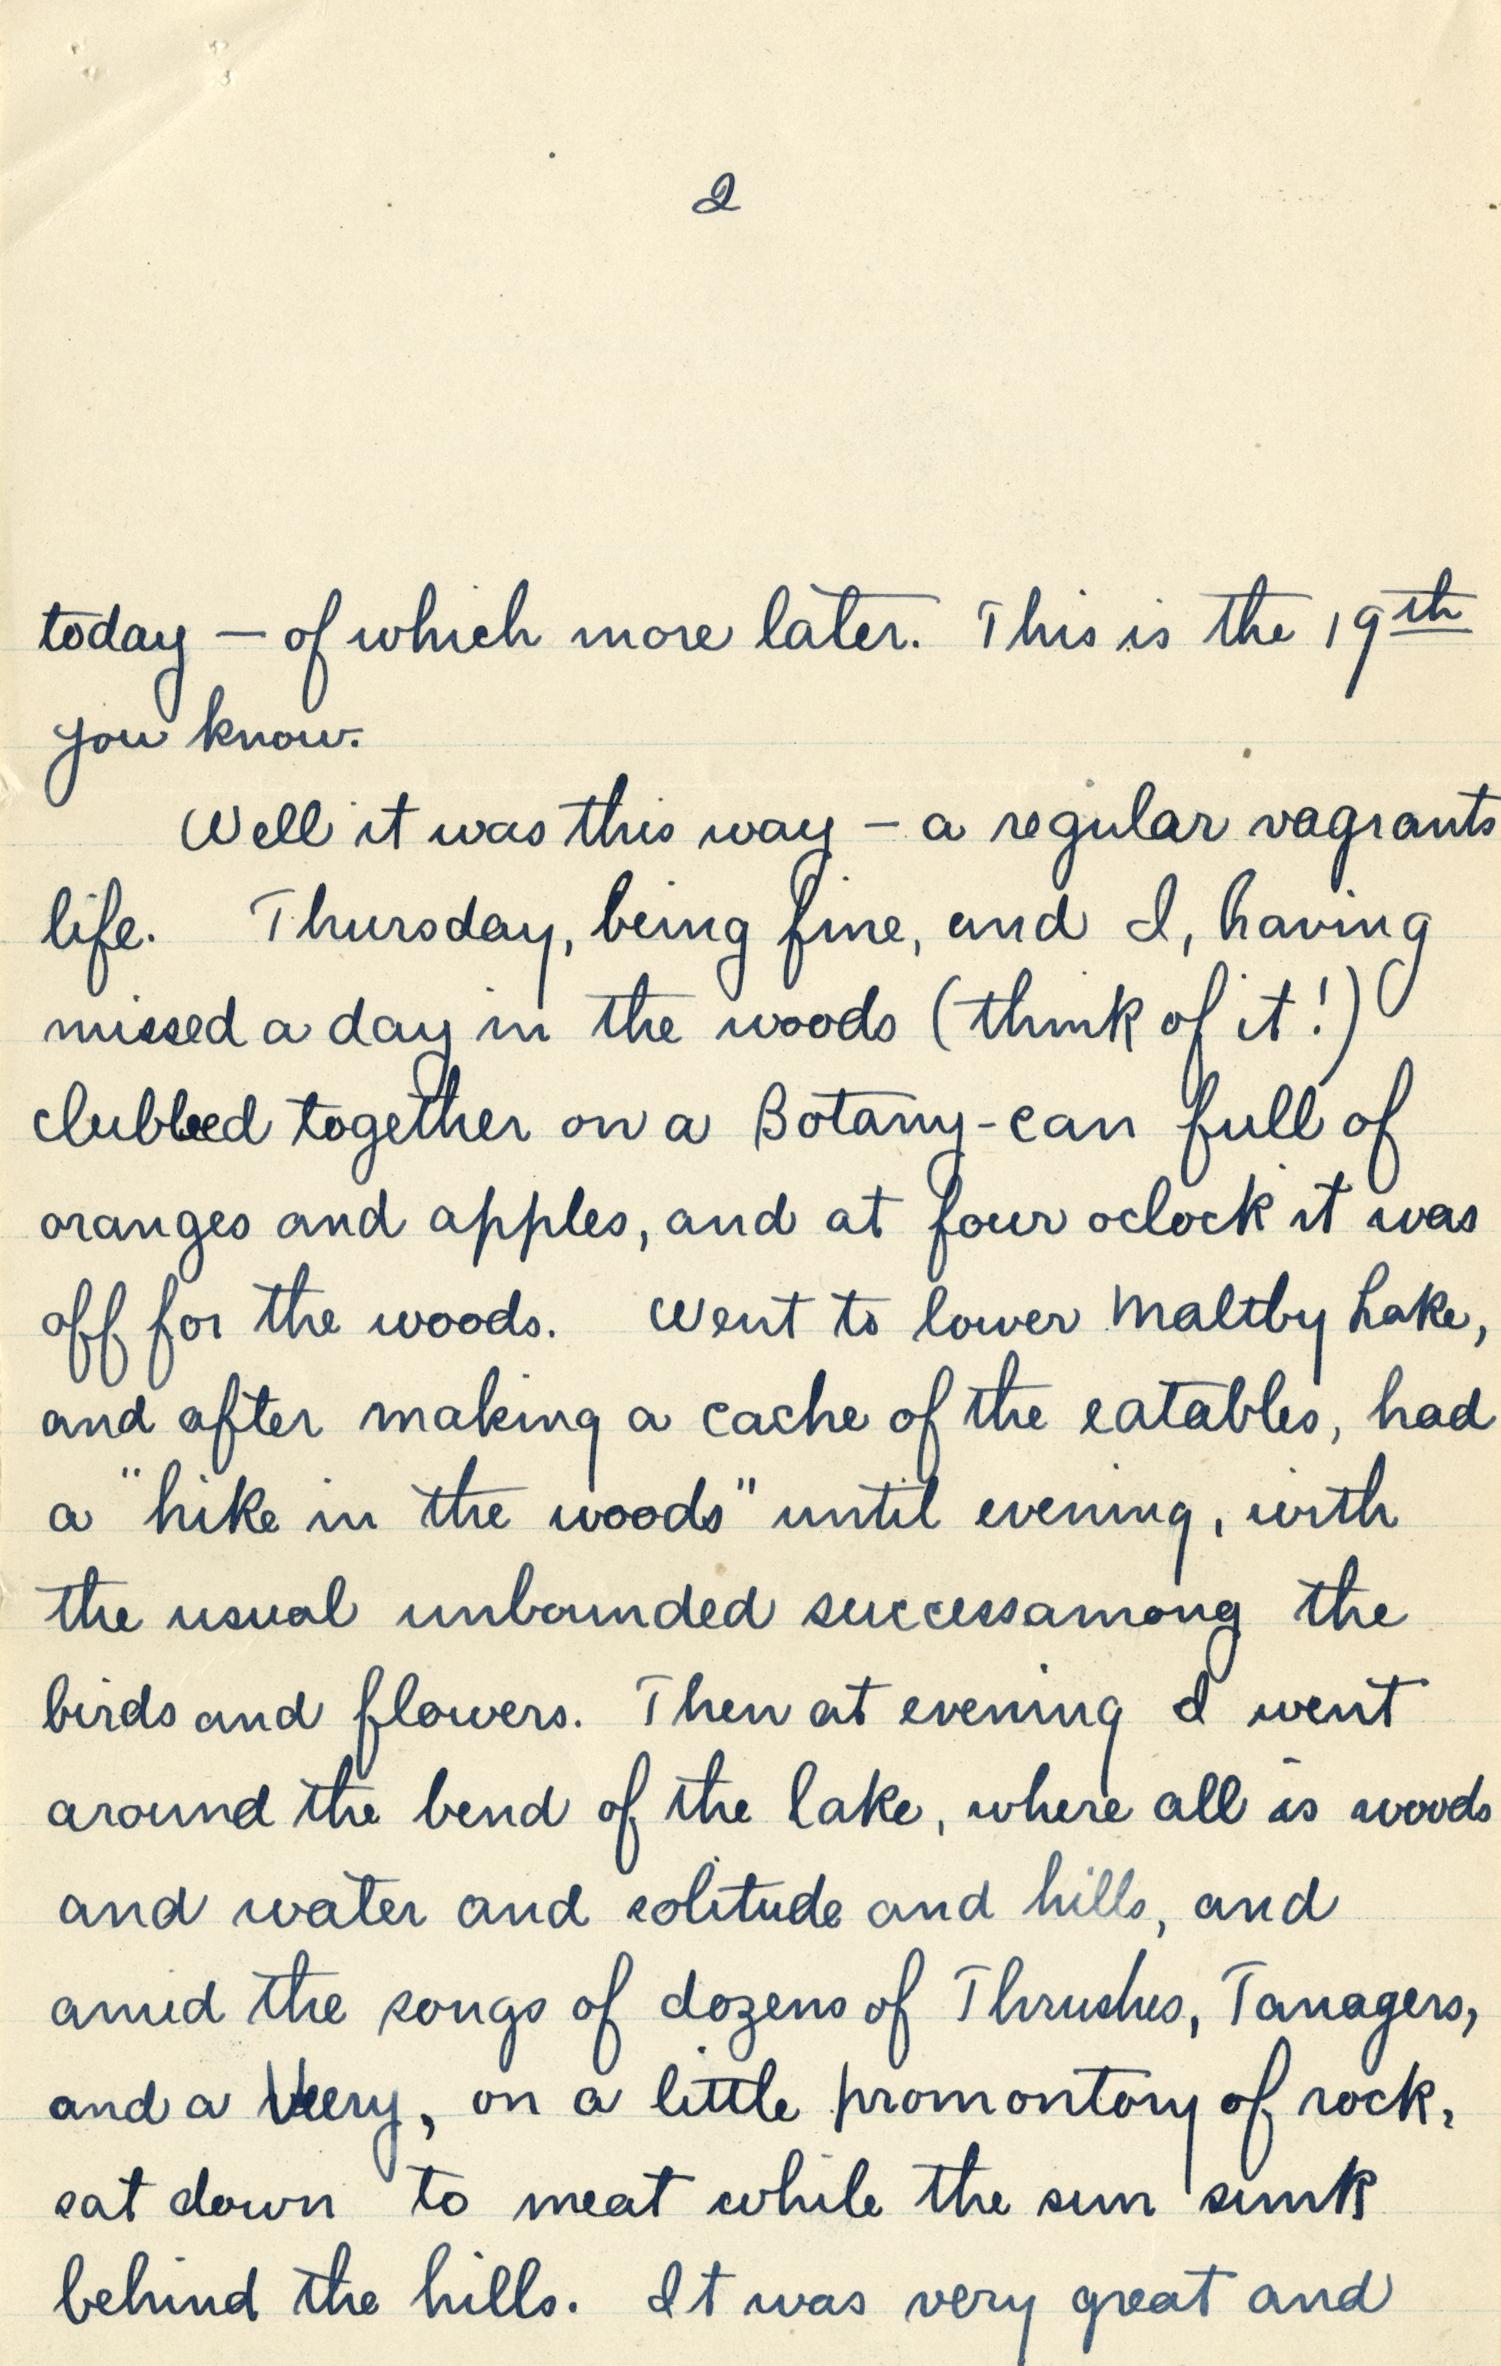 2
today — of which more later. This is the 19th
you know.
Well it was this way — a regular vagrants
life. Thursday, being fine, and I, having
missed a day in the woods (think of it!)
clubbed together on a Botany-can full of
oranges and apples, and at four oclock it was
off for the woods. Went to lower Maltby Lake,
and after making a cache of the eatables, had
a "hike in the woods" until evening, with
the usual unbounded success among the
birds and flowers. Then at evening I went
around the bend of the lake, where all is woods
and water and solitude and hills, and
amid the songs of dozens of Thrushes, Tanagers,
and a Veery, on a little promontory of rock,
sat down to meat while the sun sunk
behind the hills. It was very great and